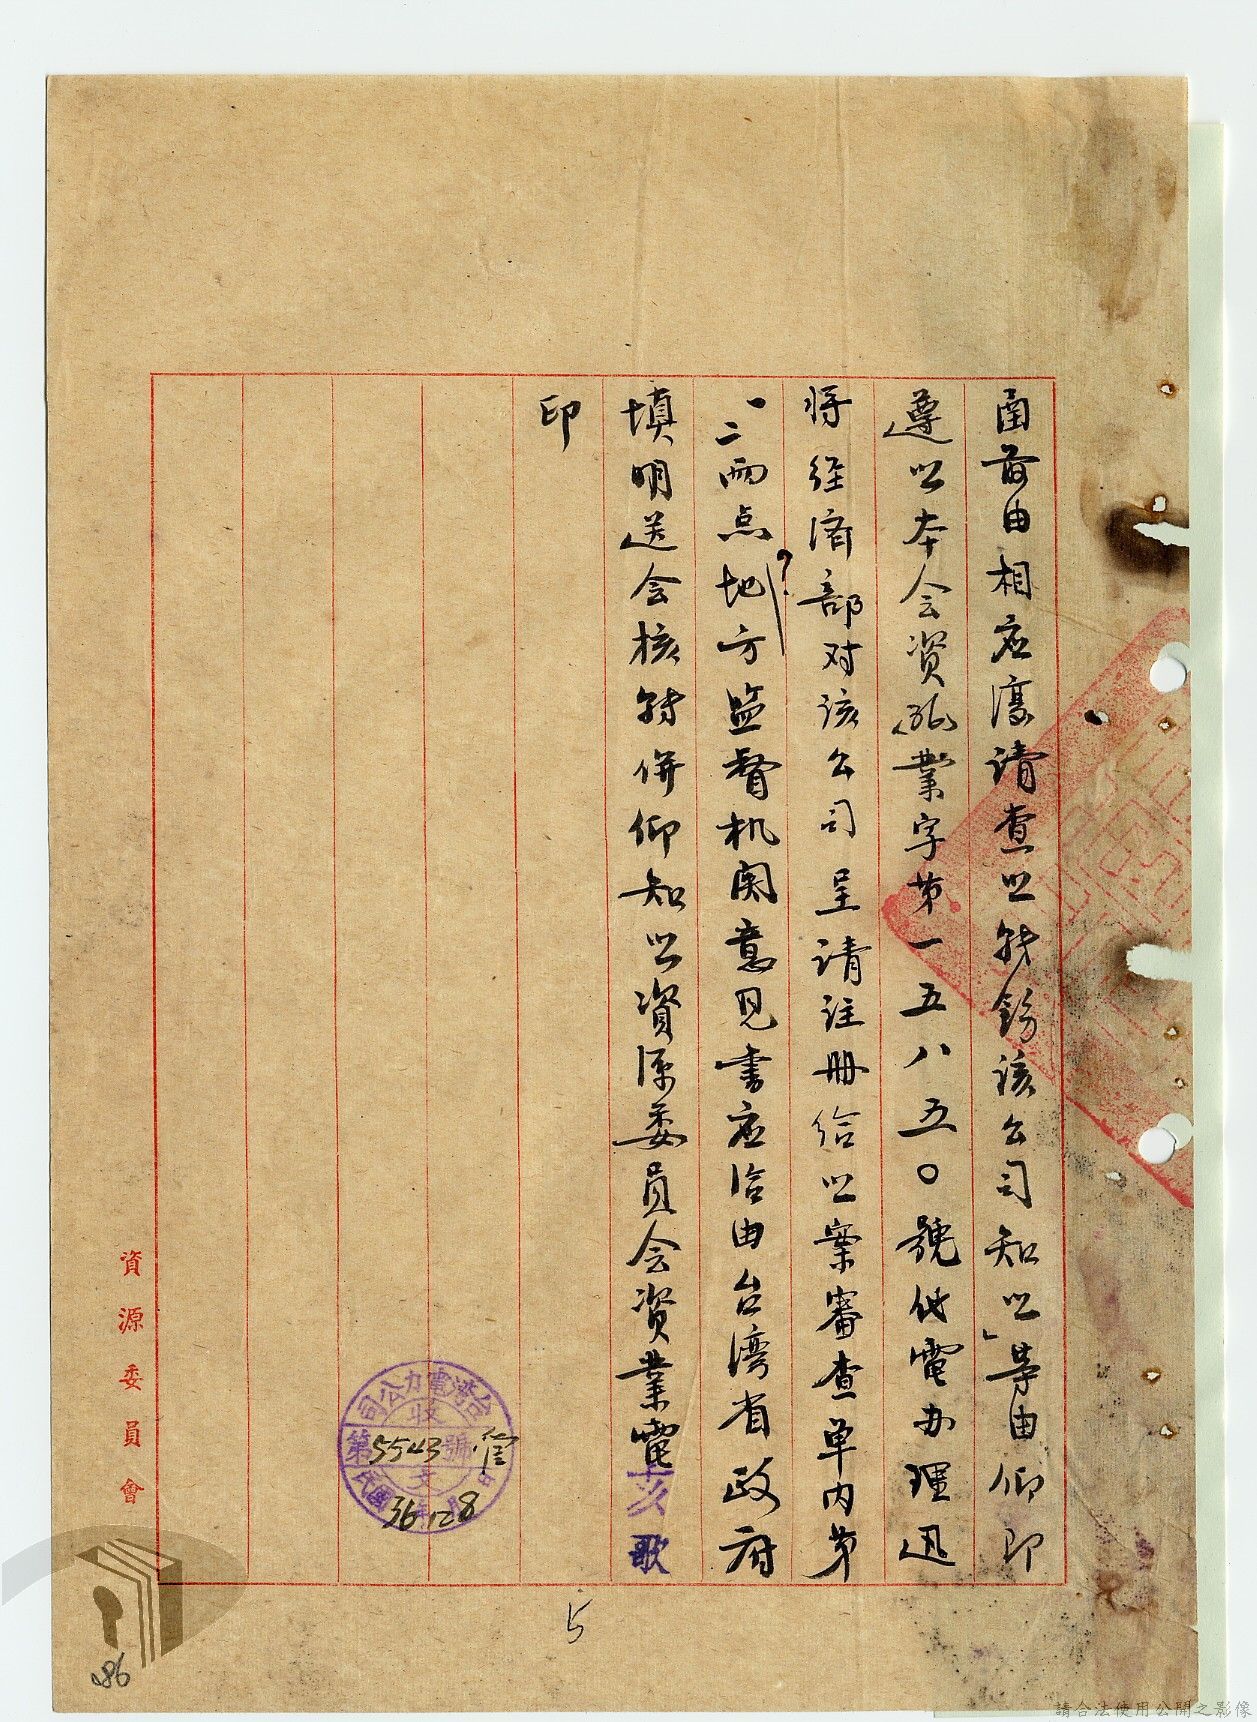 函前由相应復請查照转飭该公司知照」等由仰即
遵照本会资(36)業字第一五八五〇號代電办理迅
将经济部对该公司呈请註册给照案審查单内第
一、二两点地方监督机関意見書应洽由台湾省政府
填明送会核转併仰知照資源委員会资業電亥歌
印
資源委員會
台灣電力公司
收文
第5543號
管
民國36年12月8日
5
86
請合法使用公開之影像